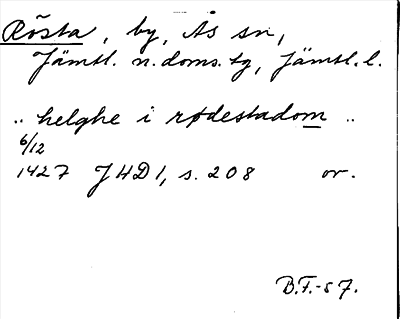 Rösta, by, Ås sn,
Jämtl. n. doms. tg, Jämtl. l.
.. helghe i rødestadom ..
6/12
1427 JHD1, s. 208 or.
B.F.-57.